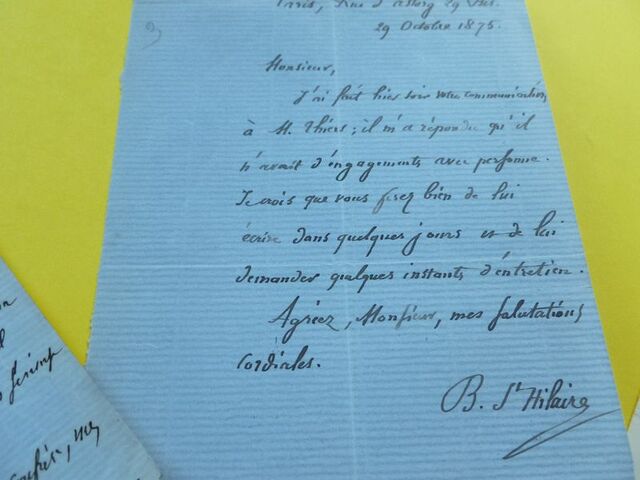 Paris, Rue d'astorg 29 Bis.
29 Octobre 1875.
Monsieur,
J'ai fait hier soir votre communication
à M. Thiers; il m'a répondu qu'il
n'avait d'engagements avec personne.
Je crois que vous ferez bien de lui
écrire dans quelques jours et de lui
demander quelques instants d'entretien.
Agréez, Monsieur, mes salutations
cordiales.
B. St Hilaire